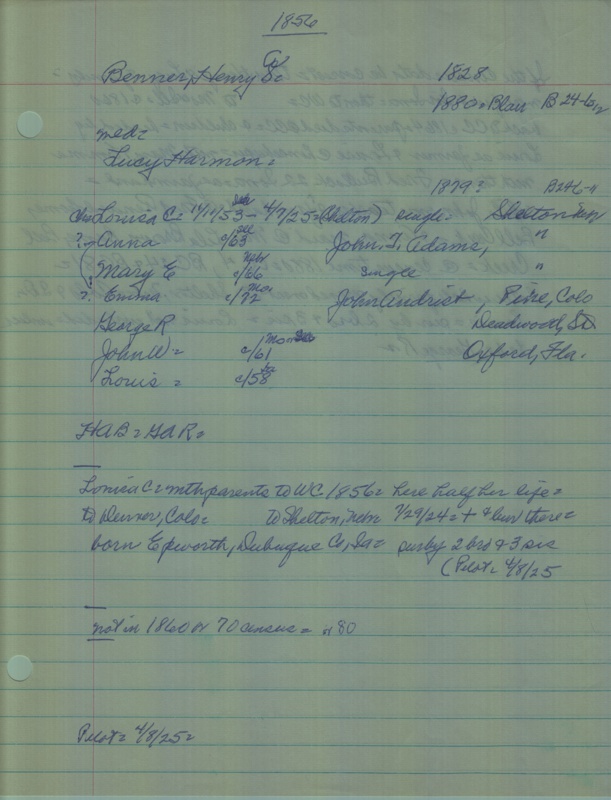 1856
Benner, Henry S= 1828
1880= Blair B 24-6
med=
Lucy Harmon=
1879? B246-11
Louisa C= 11/11/53 - 4/7/25=(Shelton) single= Shelton Neb
? Anna c/63 John. T. Adams, "
Mary E c/66 single "
? Emma c/72 John Andrist, Pine, Colo
George R Deadwood, SD
John W= c/61 Oxford, Fla.
Louis = c/58
HAB= GAR=
Louisa C= mth parents to WC 1856= here half her life=
to Denver, Colo= to Shelton, Nebr 7/29/24= + & bur there=
born Epworth, Dubuque Co, Ia= sur by 2 bro & 3 sis
(Pilot= 4/8/25
not in 1860 or 70 census= or 80
Pilot= 4/8/25=